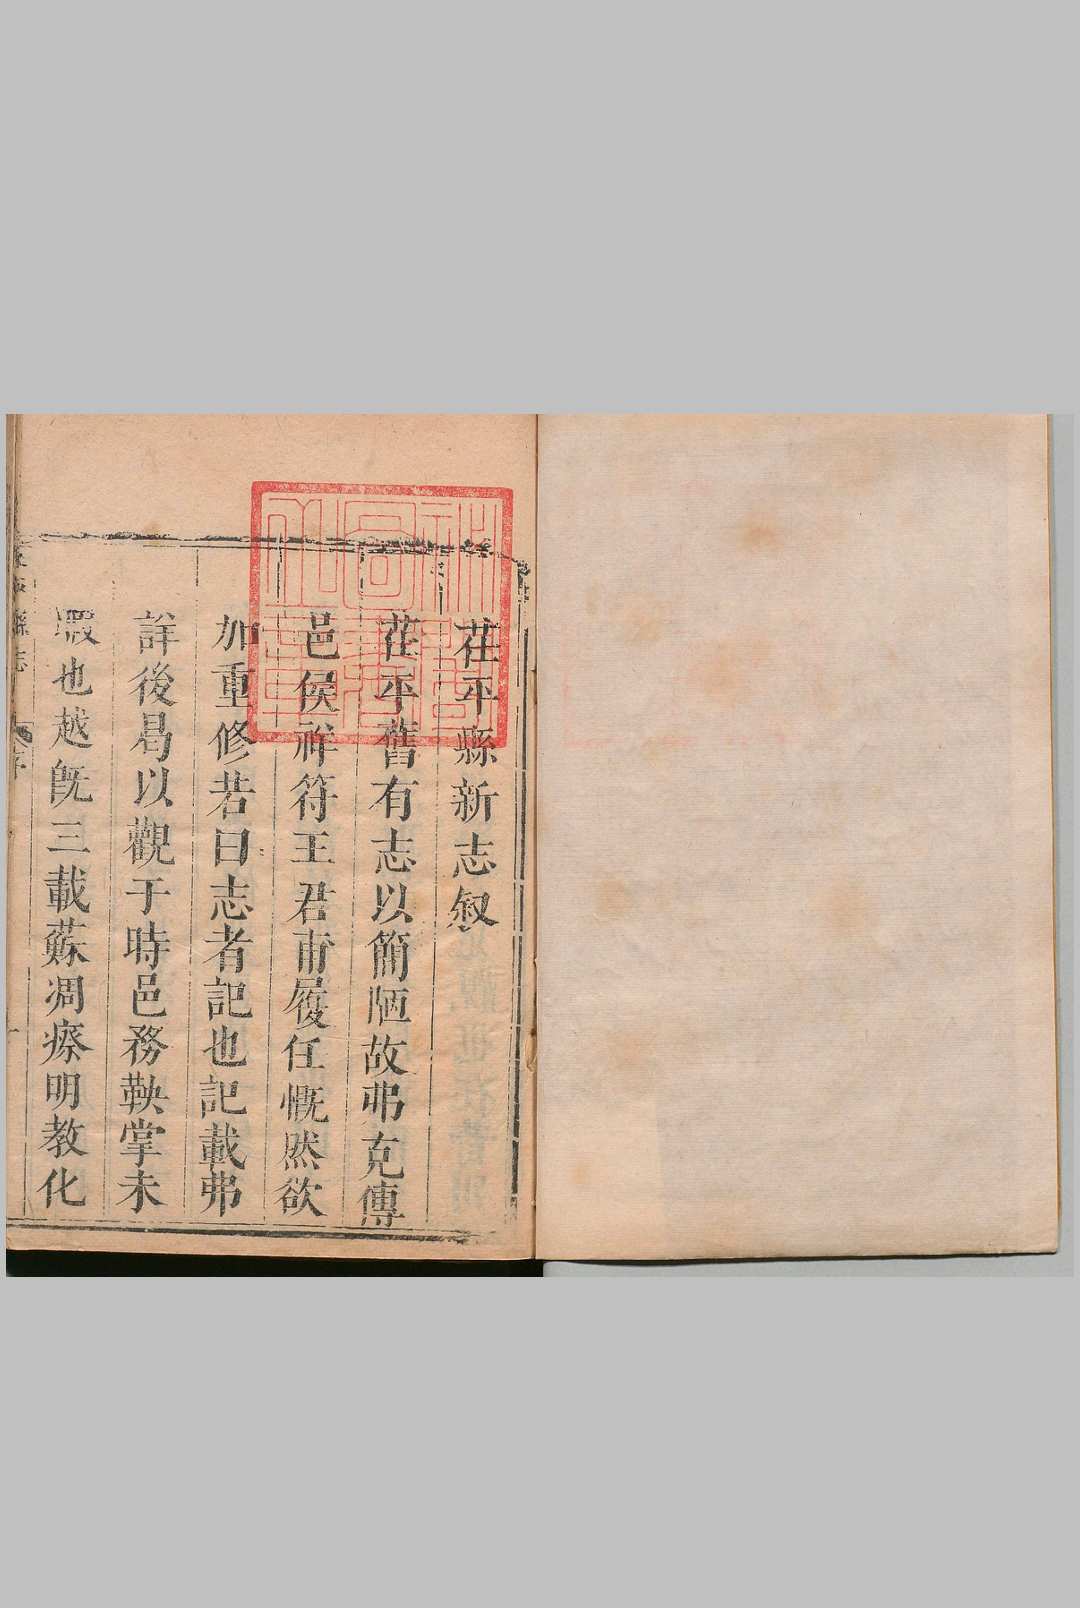 茌平縣新志叙
茌平舊有志以簡陋故弗克傳
邑侯祥符王君甫履任慨然欲
加重修若曰志者記也記載弗
詳後曷以觀于時邑務鞅掌未
暇也越旣三載蘇凋瘵明教化
縣志
序